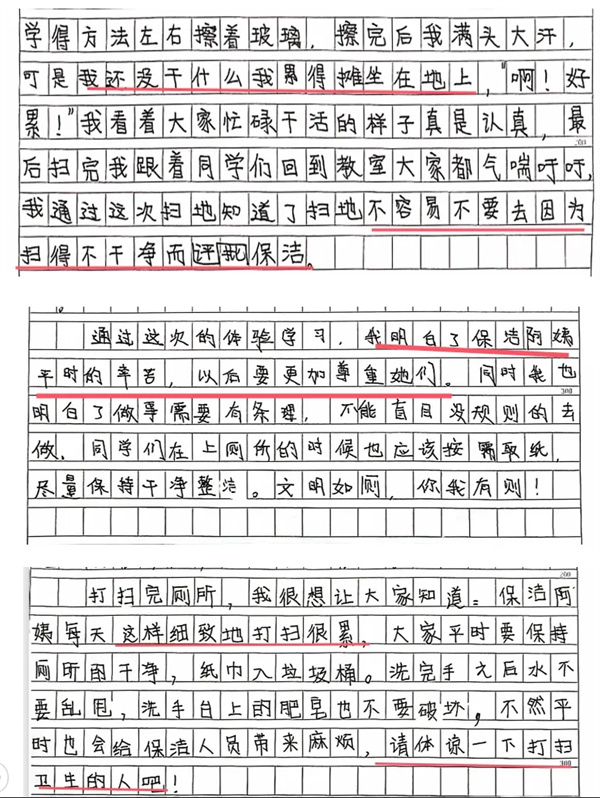 学得方法左右擦着玻璃，擦完后我满头大汗，
可是我还没干什么我累得摊坐在地上，"啊！好
累！"我看着大家忙碌干活的样子真是认真，最
后扫完我跟着同学们回到教室大家都气喘吁吁，
我通过这次扫地知道了扫地不容易不要去因为
扫得不干净而评和保洁。
通过这次的体验学习，我明白了保洁阿姨
平时的辛苦，以后要更加尊重她们。同时我也
300
明白了做事需要有条理，不能盲目没规则的去
做，同学们在上厕所的时候也应该按需取纸，
尽量保持干净整洁。文明如厕，你我有则！
200
打扫完厕所，我很想让大家知道：保洁阿
姨每天这样细致地打扫很累，大家平时要保持
厕所的干净，纸巾入垃圾桶。洗完手之后水不
要乱甩，洗手台上的肥皂也不要破坏，不然平
时也会给保洁人员带来麻烦，请体谅一下打扫
300
卫生的人吧！